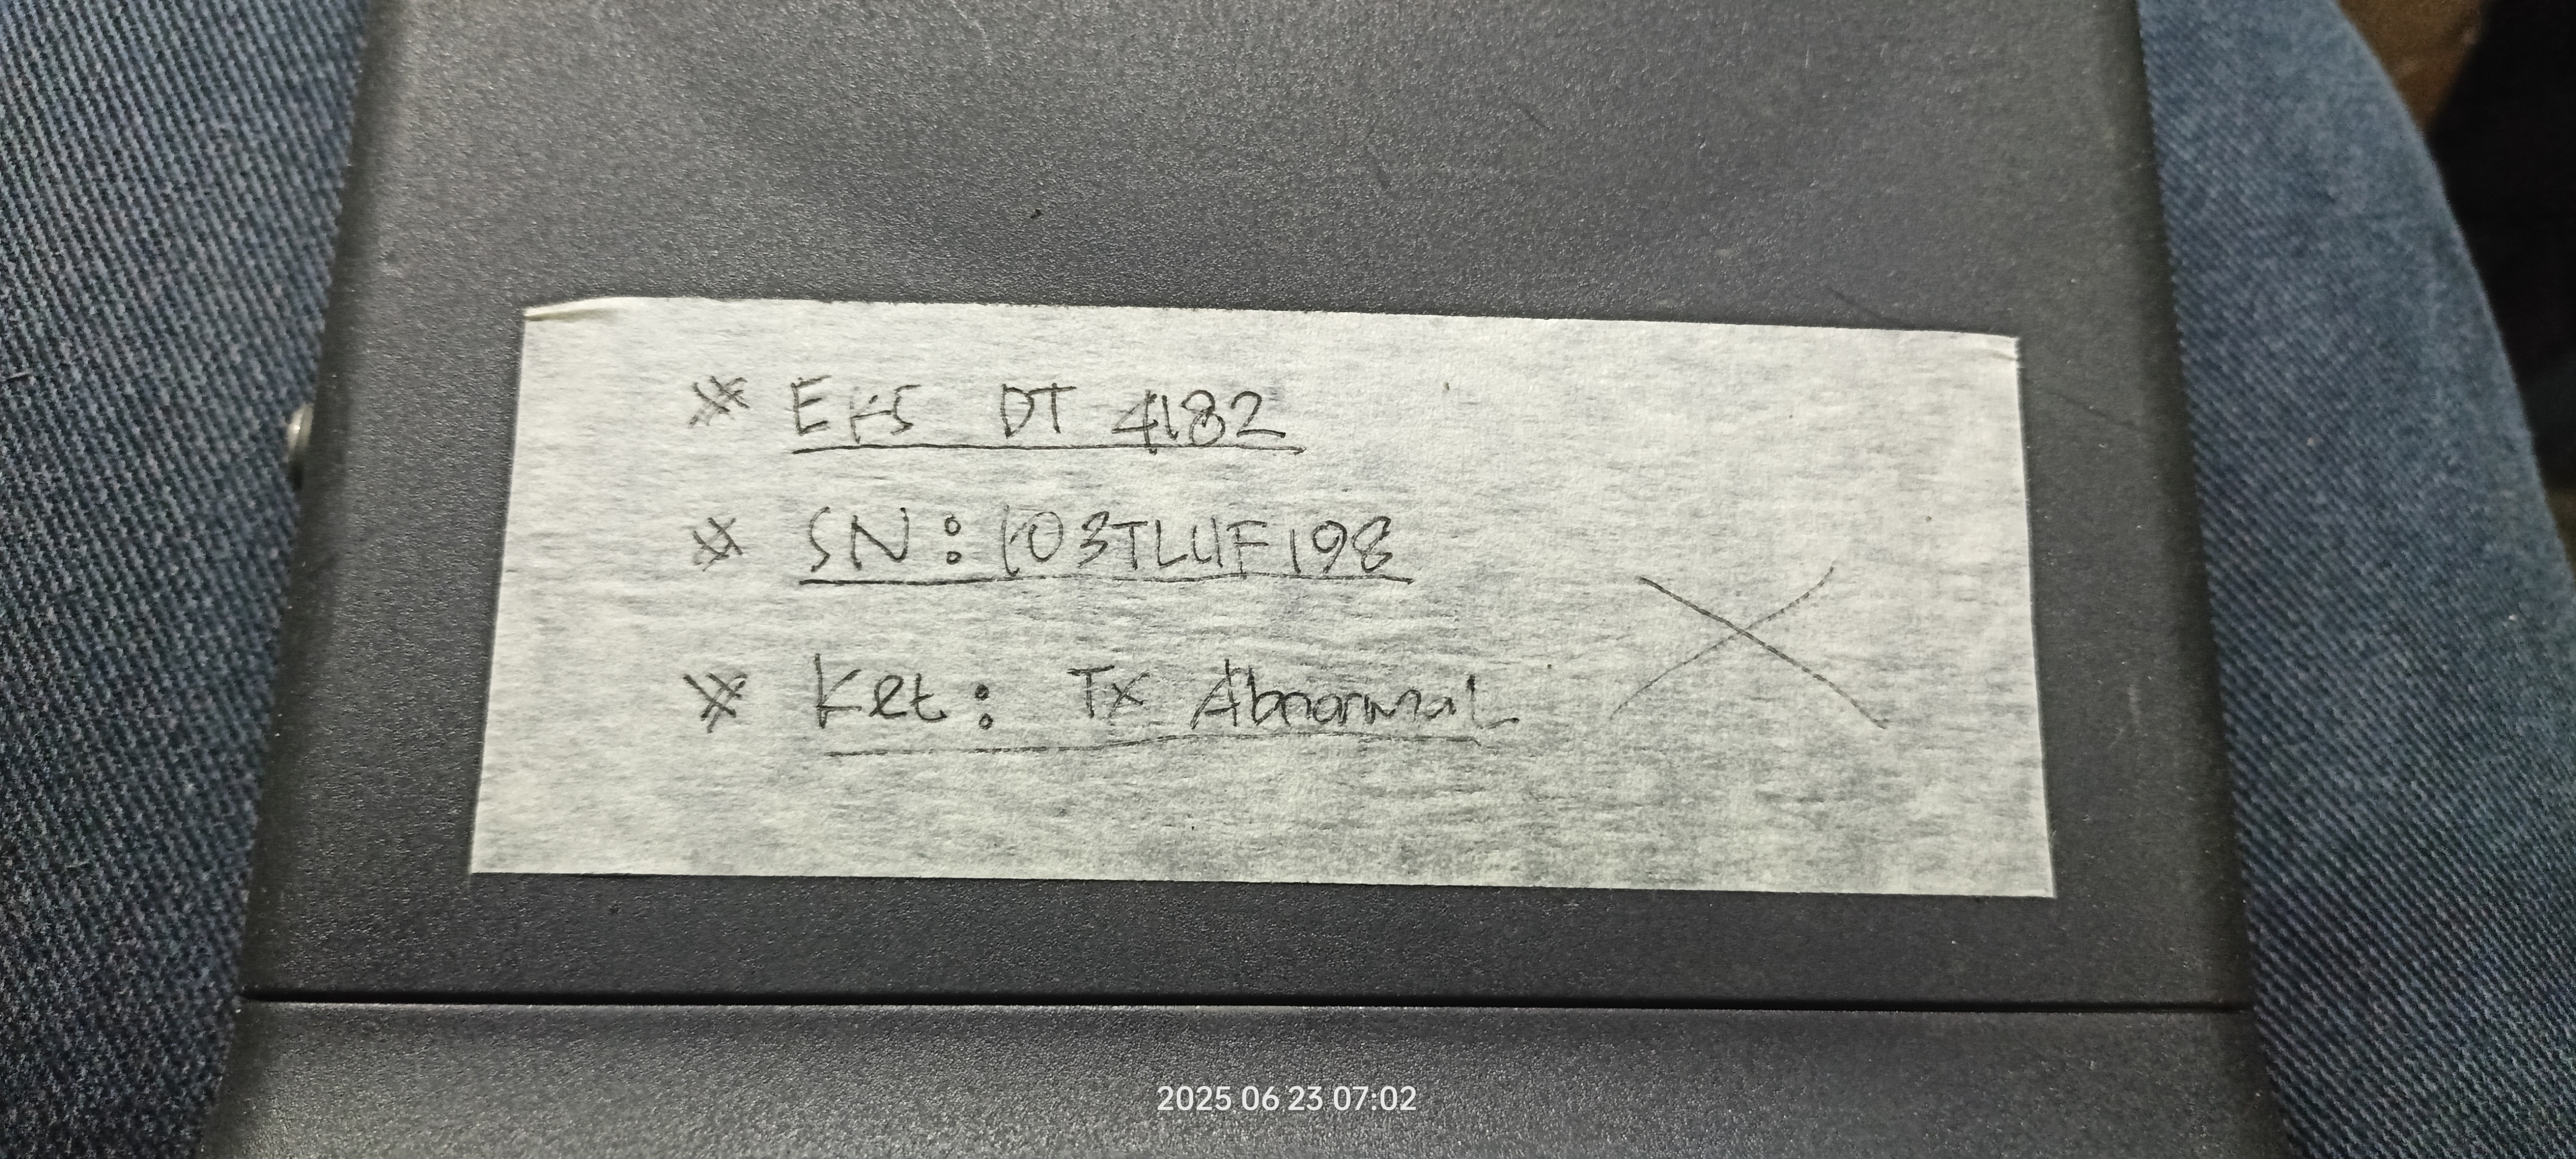 * EKS DT 4182
* SN : 103TLUF198
* Ket : Tx Abnormal
2025 06 23 07:02